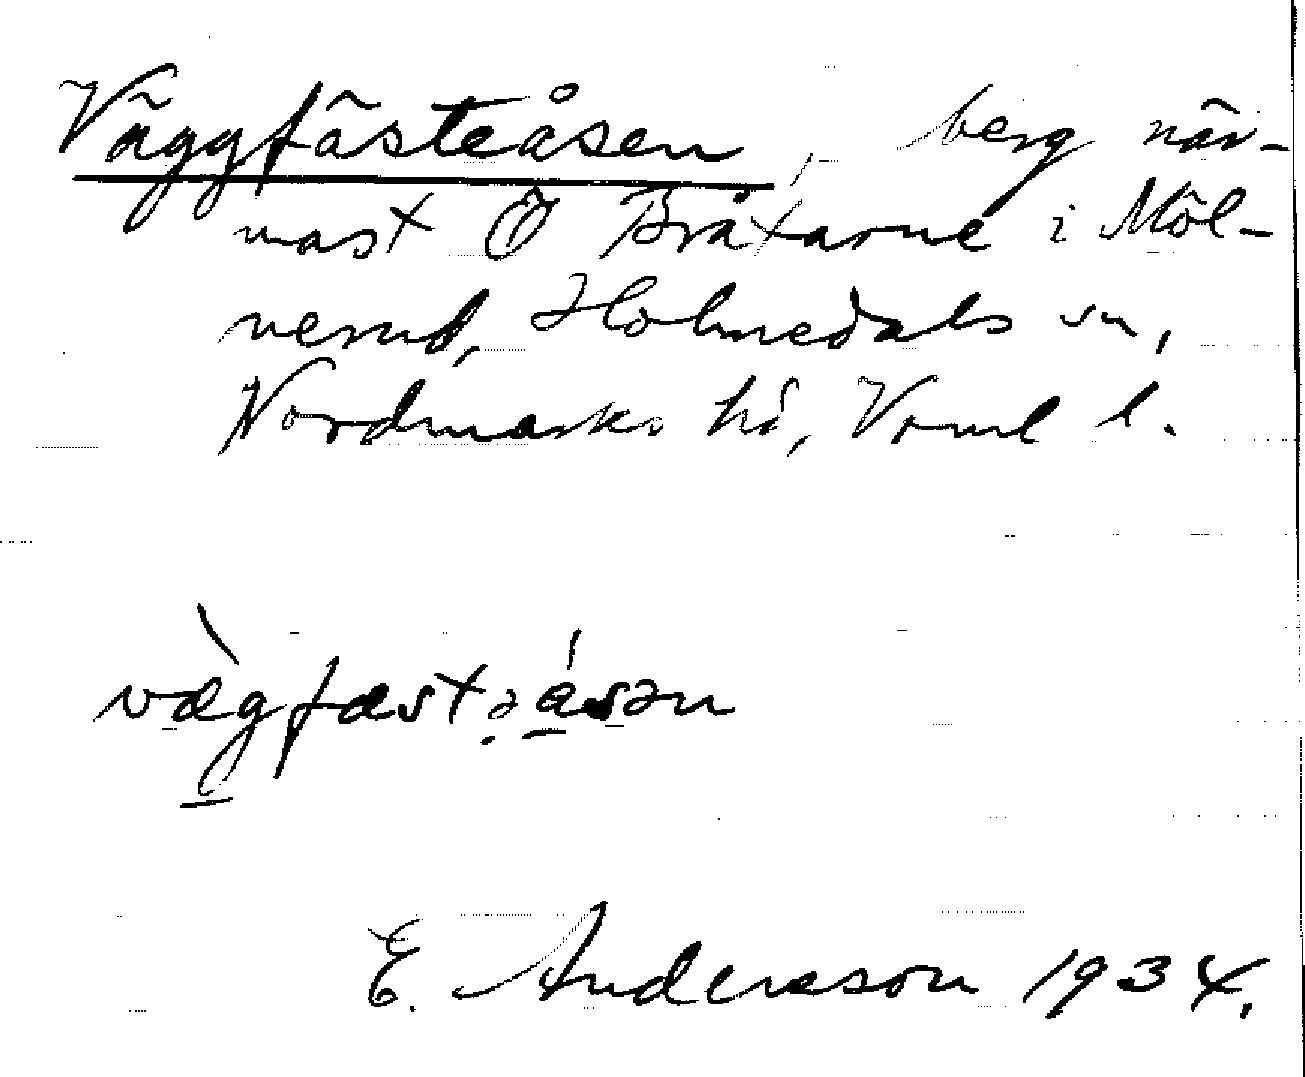 Väggfästeåsen, berg när-
mast Ö Bråtarne i Möl-
nerud, Holmedals sn,
Nordmarks hd, Vrml l.
vægfæstəåsən
E. Andersson 1934.